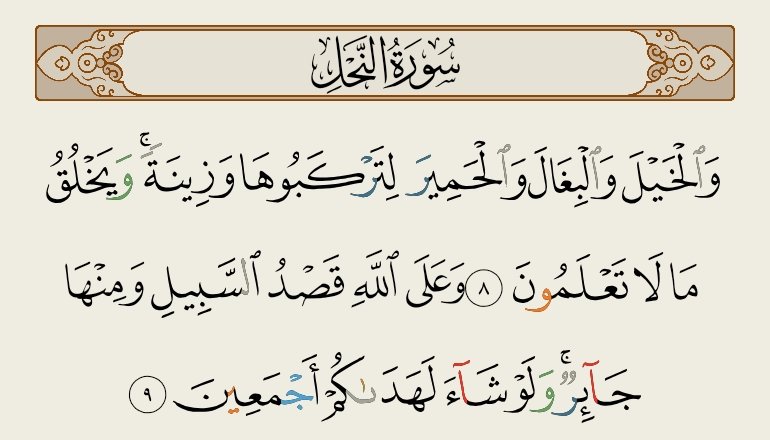 سُورَةُ النَّحْلِ
وَٱلْخَيْلَ وَٱلْبِغَالَ وَٱلْحَمِيرَ لِتَرْكَبُوهَا وَزِينَةًۚ وَيَخْلُقُ
مَا لَا تَعْلَمُونَ ٨ وَعَلَى ٱللَّهِ قَصْدُ ٱلسَّبِيلِ وَمِنْهَا
جَآئِرٌۚ وَلَوْ شَآءَ لَهَدَىٰكُمْ أَجْمَعِينَ ٩